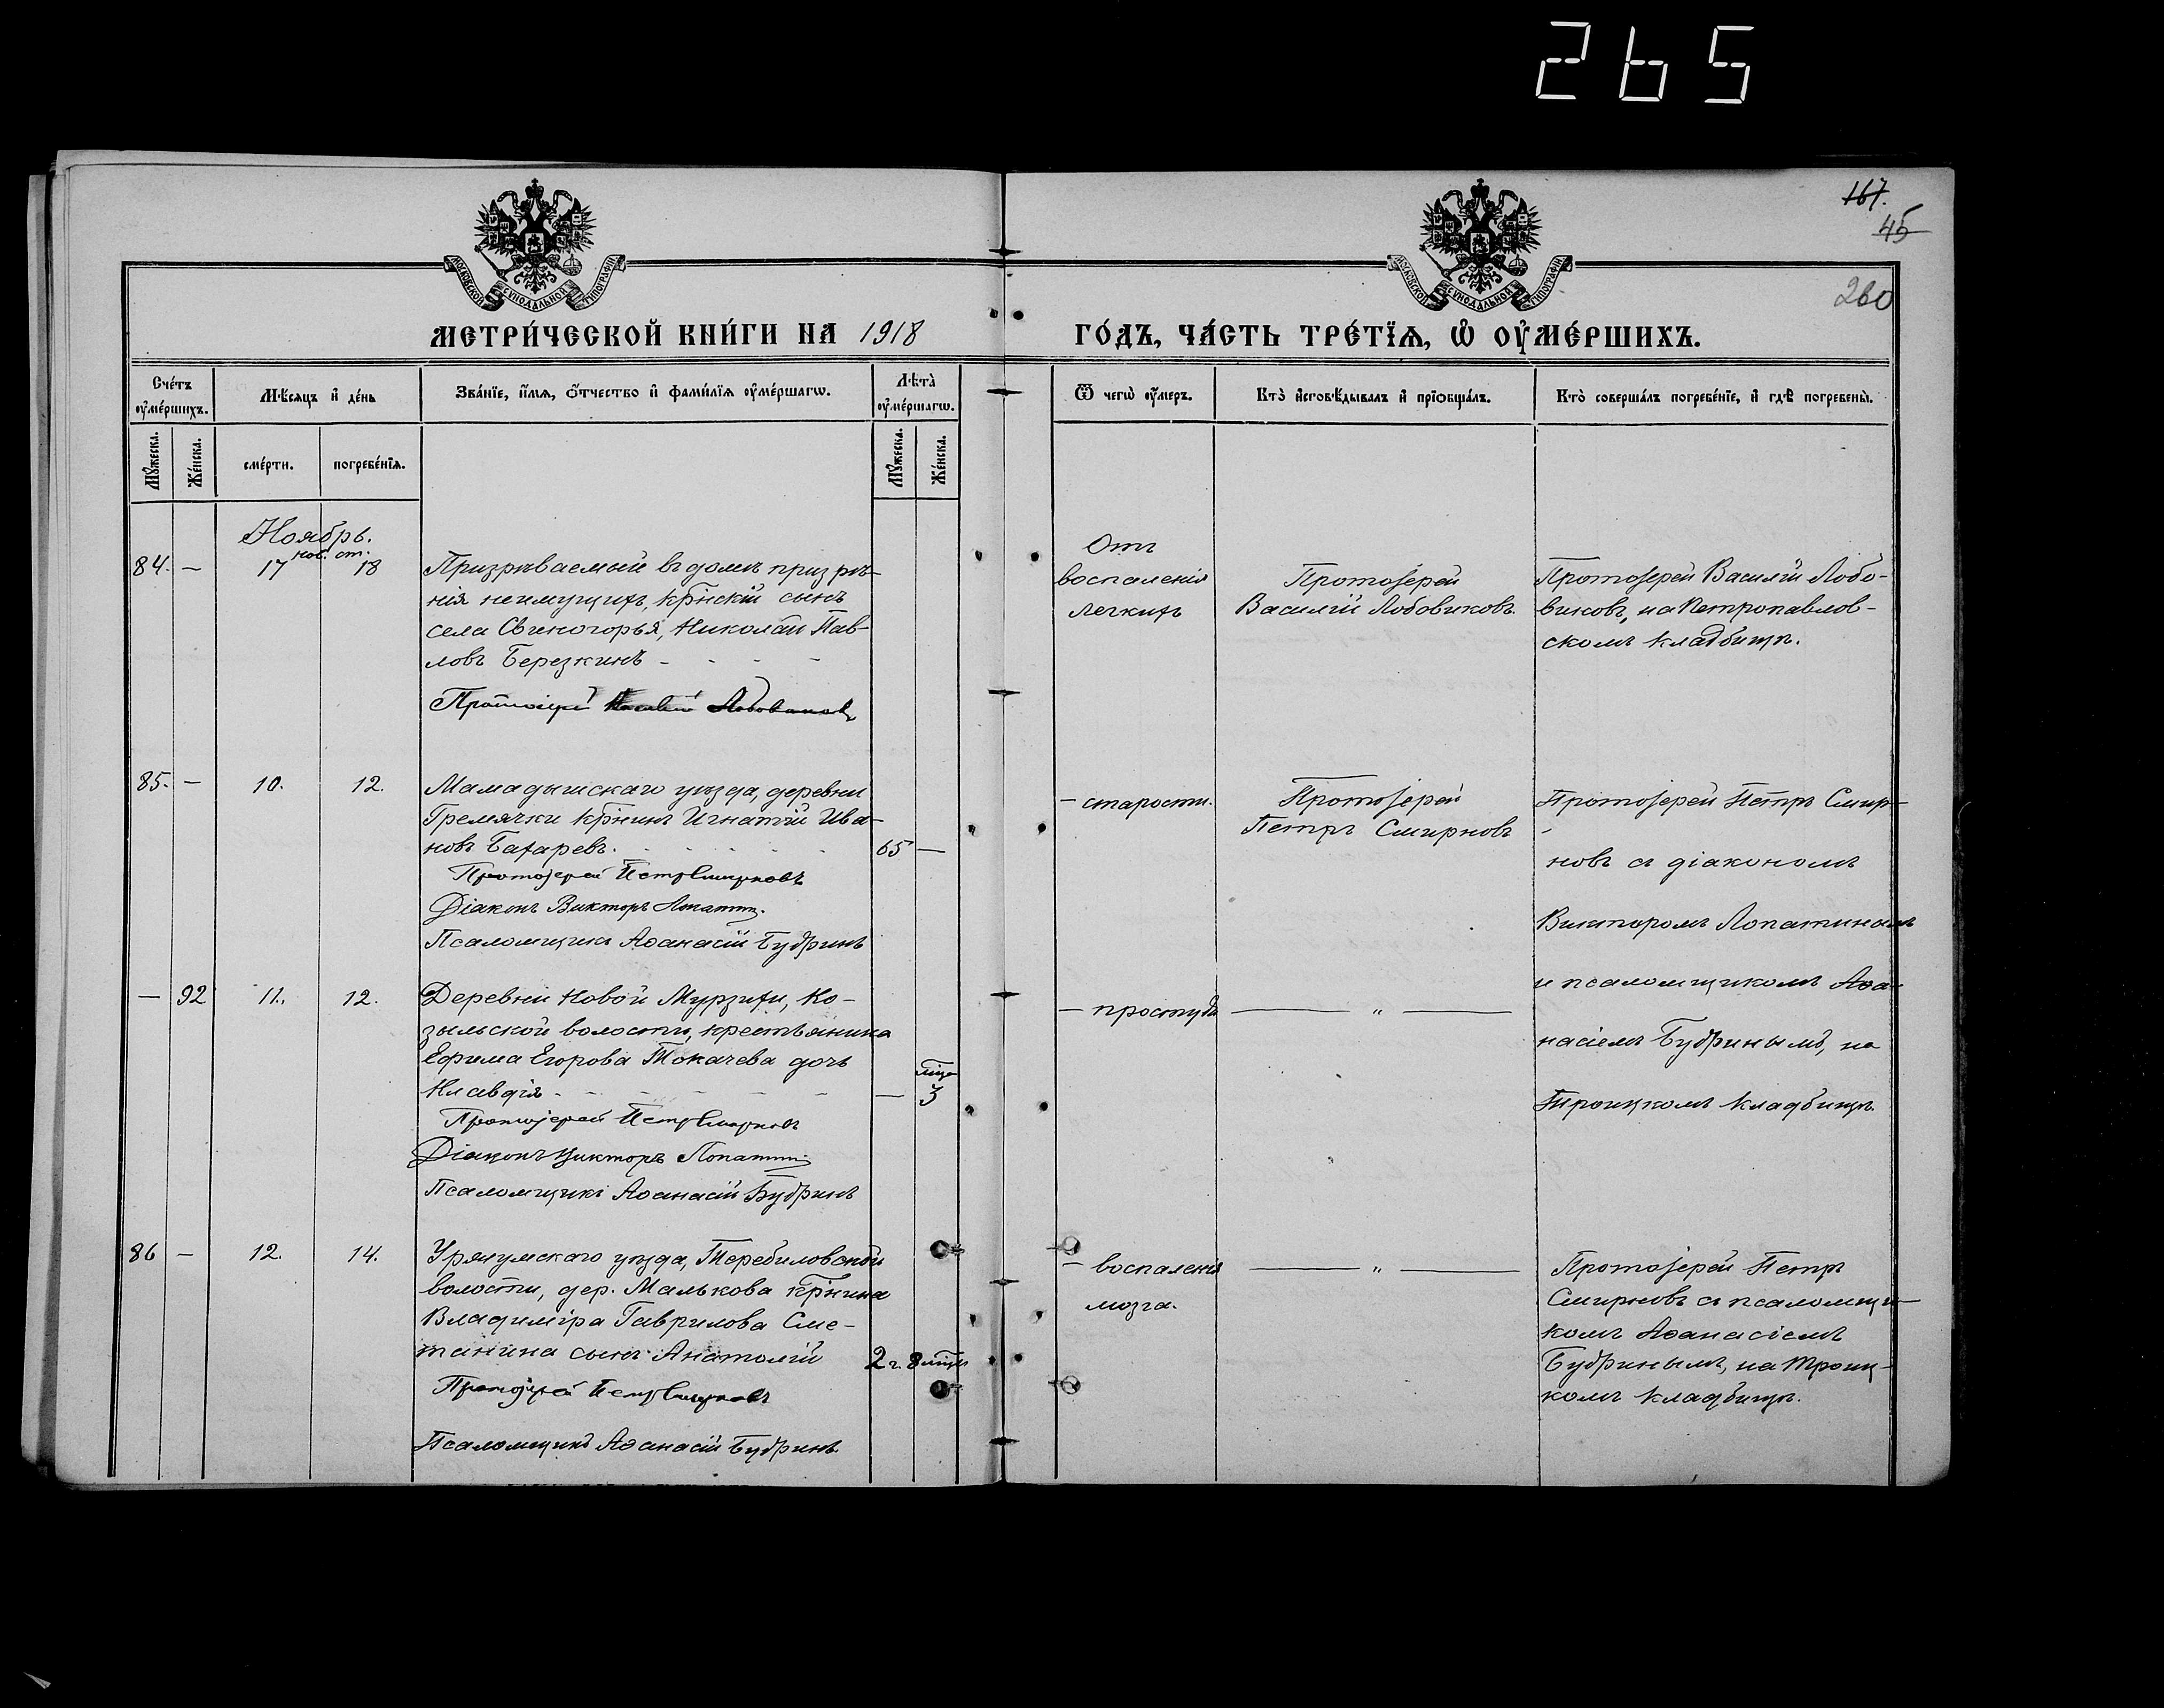 265
167.
45
260
МОСКОВСКОЙ СѴНОДАЛЬНОЙ ТИПОГРАФІИ
МОСКОВСКОЙ СѴНОДАЛЬНОЙ ТИПОГРАФІИ
МЕТРИ́ЧЕСКОЙ КНИ́ГИ НА 1918
ГО́ДЪ, ЧА́СТЬ ТРЕ́ТЇѦ, Ѡ҆ ОУ҆МЕ́РШИХЪ.
Сче́тъ оу҆ме́ршихъ.
Мѣ́сяцъ и҆ де́нь
Зва́нїе, и҆́мѧ, ѻ҆́тчество и҆ фами́лїѧ оу҆ме́ршагѡ.
Лѣ́та оу҆ме́ршагѡ.
Ѿ чегѡ̀ оу҆́меръ.
Кто̀ и҆сповѣ́дывалъ и҆ прїѡбща́лъ.
Кто̀ соверша́лъ погребе́нїе, и҆ гдѣ̀ погребены̀.
Мꙋ́жеска.
Же́нска.
сме́рти.
погребе́нїѧ.
Мꙋ́жеска.
Же́нска.
Ноябрь.
нов. ст.
84. — 17 18
Призрѣваемый въ домѣ призрѣ-
нія неимущихъ, кр̃нскій сынъ
села Свиногорья, Николай Пав-
ловъ Березкинъ - - - -
Протоіерей Василій Лобовиковъ
Отъ
воспаленія
легкихъ
Протоіерей
Василій Лобовиковъ
Протоіерей Василій Лобо-
виковъ, на Петропавлов-
скомъ кладбищѣ.
85. — 10. 12.
Мамадышскаго уѣзда, деревни
Гремячки кр̃нинъ Игнатій Ива-
новъ Бахаревъ. 65 —
Протоіерей Петръ Смирновъ
Діаконъ Викторъ Лопатинъ.
Псаломщикъ Аѳанасій Бубринъ
— старости.
Протоіерей
Петръ Смирновъ
Протоіерей Петръ Смир-
новъ съ діакономъ
Викторомъ Лопатинымъ
и псаломщикомъ Аѳа-
насіемъ Бубринымъ, на
Троицкомъ кладбищѣ.
— 92 11. 12.
Деревни Новой Мурзихи, Ко-
зыльской волости, крестьянина
Ефима Егорова Токачева дочь
Клавдія - - - - — 3
Протоіерей Петръ Смирновъ
Діаконъ Викторъ Лопатинъ
Псаломщикъ Аѳанасій Бубринъ
— простуды — " —
86 — 12. 14.
Уржумскаго уѣзда, Теребиловской
волости, дер. Малькова кр̃нина
Владиміра Гаврилова Сме-
танина сынъ Анатолій 2 г. 8 мѣц.
Протоіерей Петръ Смирновъ
Псаломщикъ Аѳанасій Бубринъ
— воспаленія — " —
мозга.
Протоіерей Петръ
Смирновъ съ псаломщи-
комъ Аѳанасіемъ
Бубринымъ, на Троиц-
комъ кладбищѣ.